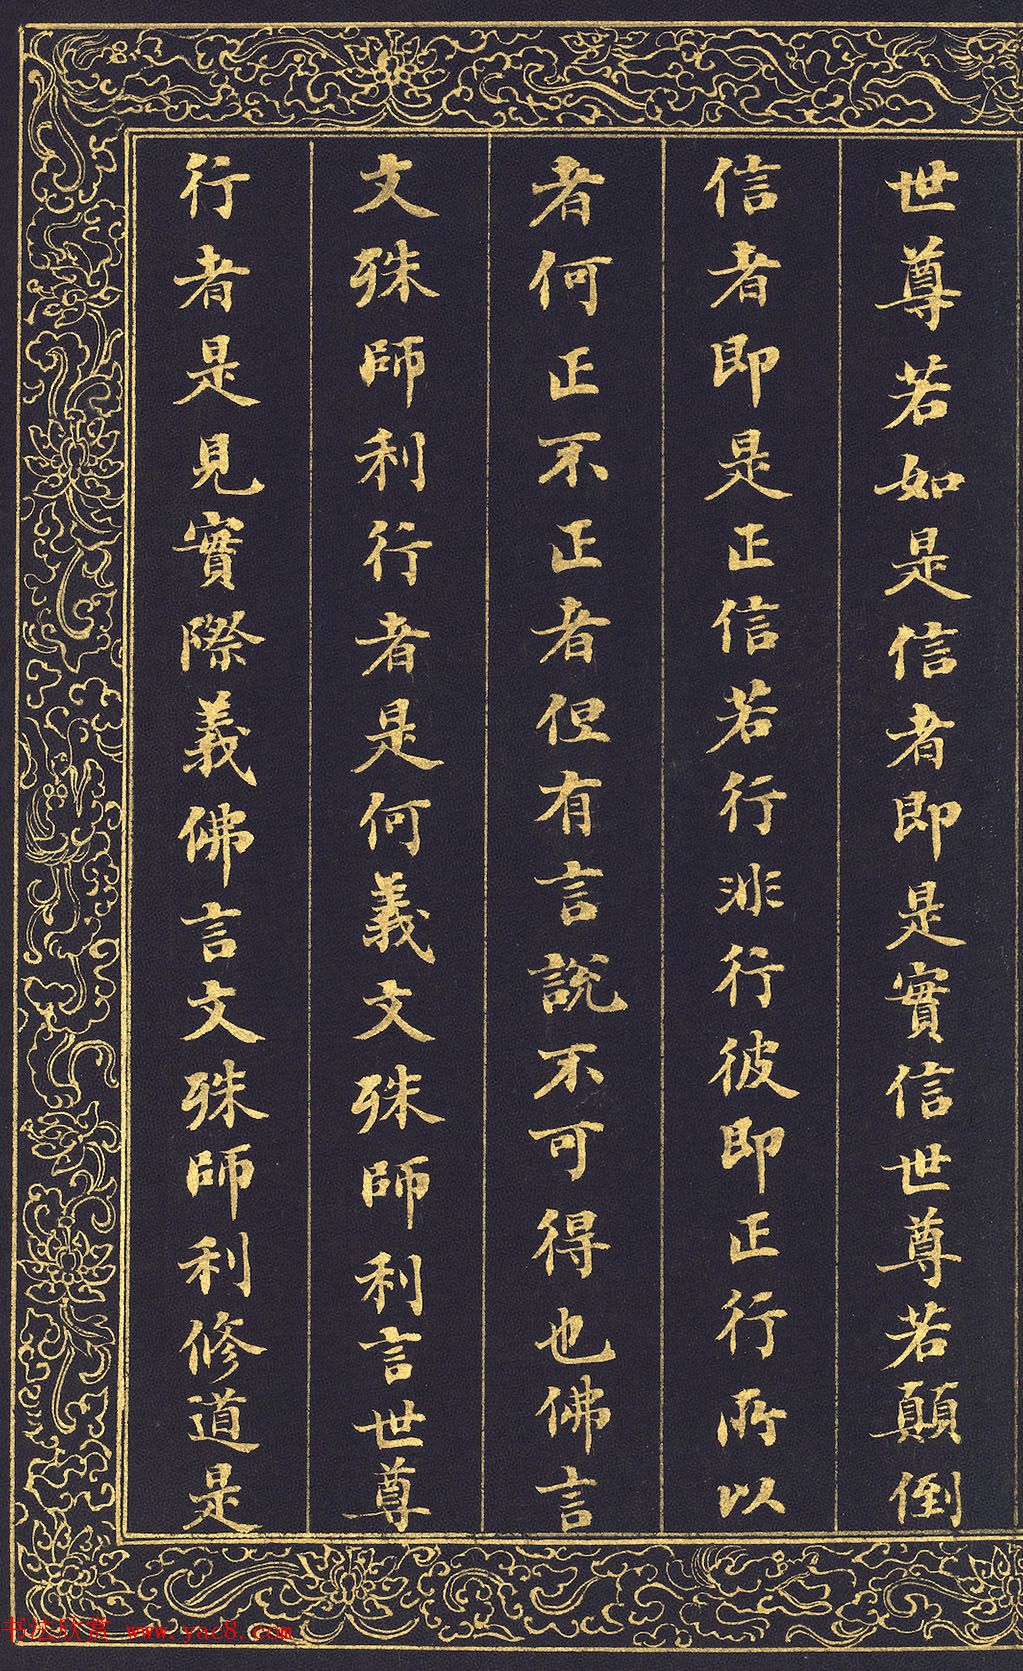 世尊若如是信者即是實信世尊若顛倒
信者即是正信若行非行彼即正行所以
者何正不正者但有言說不可得也佛言
文殊師利行者是何義文殊師利言世尊
行者是見實際義佛言文殊師利修道是
书法欣赏 www.yac8.com